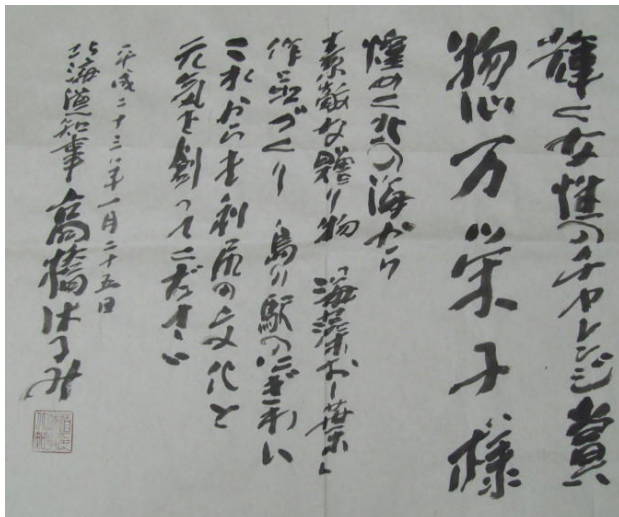 輝く女性のチャレンジ賞
惣万栄子様
煌めく北の海から
素敵な贈り物「海藻おし葉」
作品づくり 島の駅のにぎわい
これからも利尻の文化と
元気を創ってください
平成二十三年一月二十五日
北海道知事 高橋はるみ